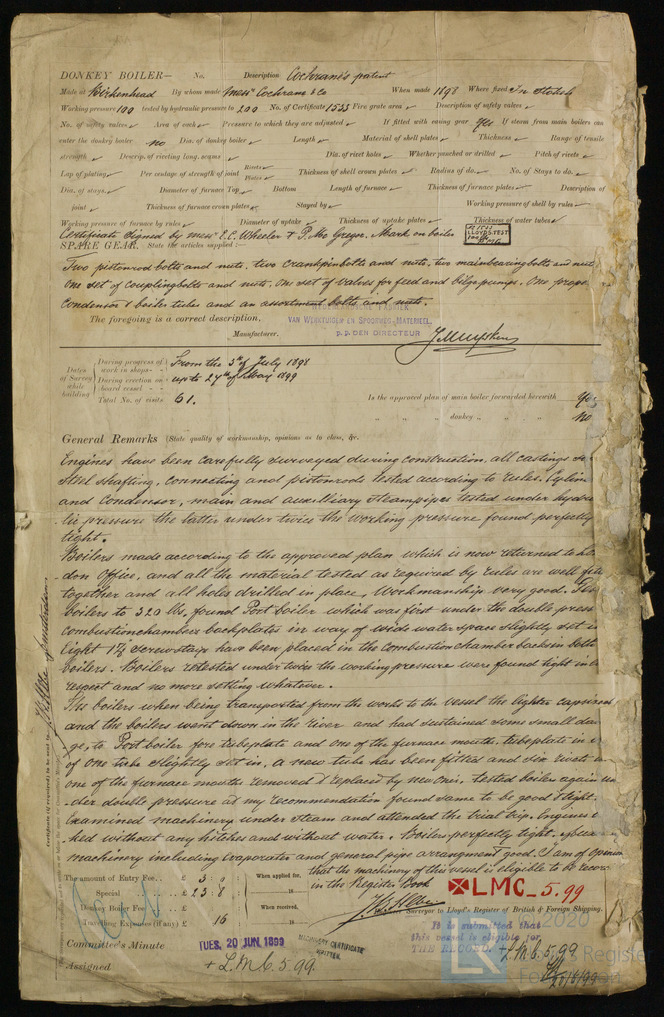 DONKEY BOILER— No. Description Cochrane's patent
Made at Birkenhead By whom made Messrs Cochrane & Co When made 1898 Where fixed In stokeh
Working pressure 100 tested by hydraulic pressure to 200 No. of Certificate 1533 Fire grate area ✓ Description of safety valves ✓
No. of safety valves ✓ Area of each ✓ Pressure to which they are adjusted ✓ If fitted with easing gear yes If steam from main boilers can
enter the donkey boiler no Dia. of donkey boiler ✓ Length ✓ Material of shell plates ✓ Thickness ✓ Range of tensile
strength ✓ Descrip. of riveting long. seams ✓ Dia. of rivet holes ✓ Whether punched or drilled ✓ Pitch of rivets ✓
Lap of plating ✓ Per centage of strength of joint Rivets ✓ Plates ✓ Thickness of shell crown plates ✓ Radius of do. ✓ No. of Stays to do. ✓
Dia. of stays. ✓ Diameter of furnace Top ✓ Bottom Length of furnace ✓ Thickness of furnace plates ✓ Description of
joint ✓ Thickness of furnace crown plates ✓ Stayed by ✓ Working pressure of shell by rules ✓
Working pressure of furnace by rules ✓ Diameter of uptake ✓ Thickness of uptake plates ✓ Thickness of water tubes ✓
Certificate signed by Messrs E.C. Wheeler & P. Mac Gregor. Mark on boiler
No 1533 LLOYDS TEST
SPARE GEAR. State the articles supplied:—
Two pistonrod bolts and nuts, two crankpin bolts and nuts, two mainbearing bolts and nuts
One set of coupling bolts and nuts, one set of valves for feed and bilge pumps. One prope
Condensor & boiler tubes and an assortment bolts and nuts.
The foregoing is a correct description.
NEDERLANDSCHE FABRIEK
VAN WERKTUIGEN EN SPOORWEG-MATERIEEL.
Manufacturer.
DEN DIRECTEUR
Dates of Survey while building
During progress of work in shops - - From the 5th of July 1898
During erection on board vessel - - up to 27th of May 1899
Total No. of visits 61.
Is the approved plan of main boiler forwarded herewith Yes
" " " donkey " " " No
General Remarks (State quality of workmanship, opinions as to class, &c.
Engines have been carefully surveyed during construction. all castings
Steel shafting, connecting and pistonrods tested according to rules. Cylin
and Condensor, main and auxilliary steampipes tested under hydrau
lic pressure the latter under twice the working pressure found perfectly
tight.
Boilers made according to the approved plan which is now returned to Lon
don Office, and all the material tested as required by rules are well fitte
together and all holes drilled in place. Workmanship very good.
boilers to 320 lbs, found Port boiler which was first under the double press
Combustionchambers backplates in way of wide water space slightly set in
Eight 1¾ screwstays have been placed in the combustionchamber backs in both
boilers. Boilers retested under twice the working pressure were found tight in
respect and no more setting whatever.
The boilers when being transported from the works to the vessel the lighter capsized
and the boilers went down in the river and had sustained some small da
ge, to Port boiler fore tubeplate and one of the furnace mouth. tubeplate in
of one tube slightly set in, a new tube has been fitted and six rivets in
one of the furnace mouths removed & replaced by new ones. tested boiler again un
der double pressure at my recommendation found same to be good & tight.
Examined machinery under steam and attended the trial trip. Engines
ked without any hitches and without water. Boilers perfectly tight.
machinery including evaporator and general pipe arrangment good. I am of opinion
that the machinery of this vessel is eligible to be record
in the Register Book
LMC 5.99
The amount of Entry Fee.. £ 3 : 0
When applied for,
Special .. £ 23 : 8
Donkey Boiler Fee .. £
When received,
Travelling Expenses (if any) £ 16
Surveyor to Lloyd's Register of British & Foreign Shipping.
It is submitted that
this vessel is eligible for
THE RECORD. + L.M.C. 5.99
Committee's Minute
TUES, 20 JUN. 1899
MACHINERY CERTIFICATE
WRITTEN.
Assigned + L.M.C. 5.99.
20/6/99
LR
©2020
Register
Fo
Amsterdam
Certificate (if required) to be sent to